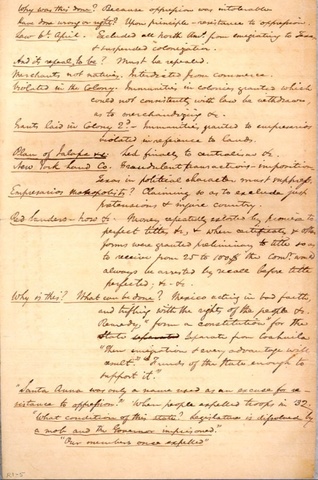 Why was this done? Because oppression was intolerable
Have done wrong or right? Upon principle - resistance to oppression.
Law 6th April. Excluded all North Ams. from emigrating to Texas
& suspended colonization.
And its repeal, to be? Must be repealed.
Merchants not natives. Interdicted from commerce.
Violated in the Colony - Immunities in colonies granted which
could not consistently with law be withdrawn,
as to merchandizing &c.
Grants laid in Colony 2? - Immunities granted to empresarios
violated in reference to lands.
Plan of Jalapa &c. led finely to centralism &c.
New York Land Co. Fraudulent transactions - imposition,
Texas in political character must suppress.
Empresarios monopolists? Claiming so as to exclude just
pretensions & injure country.
Red Landers - how &c - Money repeatedly extorted by promise to
perfect titles, &c, & when certificates, & other
forms were granted preliminary to title so as
to receive from 25 to 100$ the Comr. would
always be arrested by recall before titles
perfected; &c - &c.
Why is this? What can be done? Mexico acting in bad faith,
and trifling with the rights of the people &c
Remedy, "form a constitution" for the
State separate from Coahuila
"Then emigration & every advantage will
result." "Funds of the State enough to
support it."
"Santa Anna was only a name used as an excuse for re-
sistance to oppression." When people expelled troops in 32.
"What condition of this State? Legislature is dissolved by
a mob and the Governor imprisoned."
"Our members once expelled"